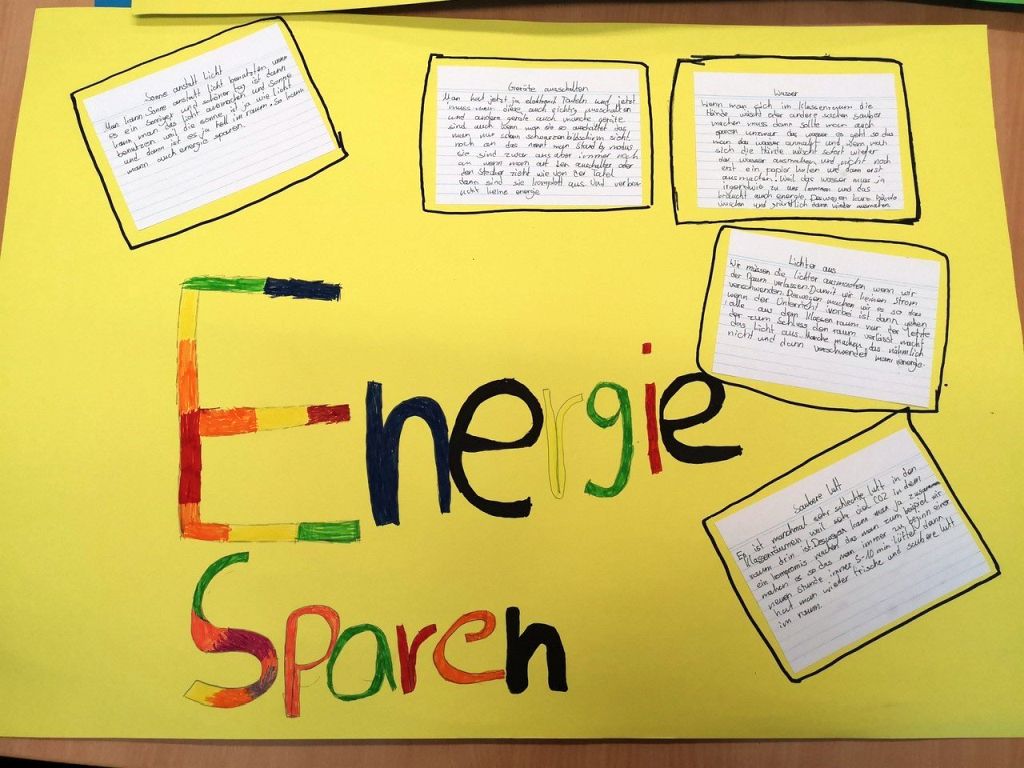 Sonne anstatt Licht
Man kann Sonne anstatt Licht benutzten wenn
es ein sonniger und schöner tag ist dann
kann man das Licht ausmachen und Sonne
benutzen weil die sonne ist ja wie Licht
und dann ist es ja hell im raum. So kann
mann auch energie sparen.
Geräte ausschalten
Man hat jetzt ja elektronik Tafeln und jetzt
muss man diese auch richtig ausschalten
und andere geräte auch manche geräte
sind auch wenn man sie so ausschaltet das
man nur schwarzen bildschirm sieht
noch an das nennt man Stand by modus
sie sind zwar aus aber immer noch
an wenn man auf den ausschalter oder
den Stecker zieht wie von der Tafel
dann sind sie komplett aus und verbrau
cht keine energie
Wasser
Wenn man sich im Klassenraum die
Hände wäscht oder andere sachen sauber
machen muss dann sollte man auch
sparen und zwar das wasser es geht so das
man das wasser anmacht und wenn man
sich die Hände wäscht sofort wieder
das wasser ausmachen und nicht noch
erst ein papier holen und dann erst
ausmachen. Weil das wasser muss ja
irgendwie zu uns kommen und das
braucht auch energie. Deswegen kurz Hände
waschen und natürlich dann wieder ausmachen
Lichter aus
Wir müssen die Lichter ausmachen wenn wir
der Raum verlassen. Damit wir keinen Strom
verschwenden. Deswegen machen wir es so das
wenn der Unterricht vorbei ist dann gehen
alle aus dem Klassen raum nur der letzte
der zum Schluss den raum verlässt macht
das Licht aus. Manche machen das nähmlich
nicht und dann verschwendet man energie.
Energie
Saubere luft
Es ist manchmal sehr schlechte luft in den
Klassenräumen weil sehr viel CO2 in dem
raum drin ist. Deswegen kann man ja zusammen
ein kompromis machen das man zum beispiel wir
machen es so das man immer zu beginn einer
neuen Stunde immer 5-10 min. lüftet dann
hat man wieder frische und saubere luft
im raum.
Sparen